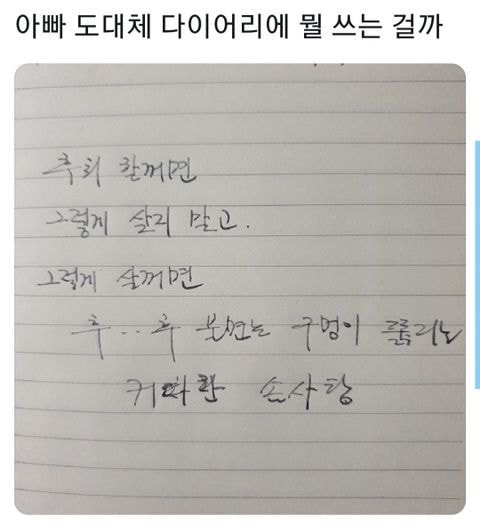 아빠 도대체 다이어리에 뭘 쓰는 걸까
후회 할꺼면
그렇게 살지 말고.
그렇게 살꺼면
후 .. 후 불면는 구멍이 뚫리는
커다란 솜사탕